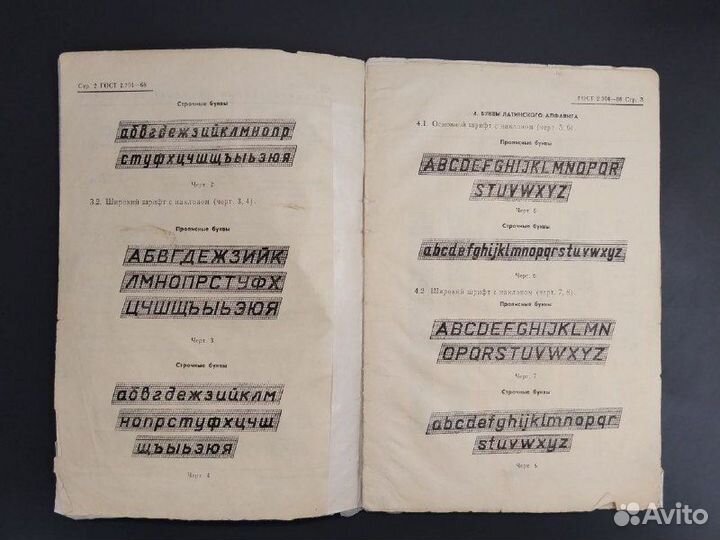 Стр. 2 ГОСТ 2.304—68
Строчные буквы
абвгдежзийклмнопр
стуфхцчшщъыьэюя
Черт. 2
3.2. Широкий шрифт с наклоном (черт. 3, 4).
Прописные буквы
АБВГДЕЖЗИЙК
ЛМНОПРСТУФХ
ЦЧШЩЪЫЬЭЮЯ
Черт. 3
Строчные буквы
абвгдежзийклм
нопрстуфхцчш
щъыьэюя
Черт. 4
ГОСТ 2.304—68 Стр. 3
4. БУКВЫ ЛАТИНСКОГО АЛФАВИТА
4.1. Основной шрифт с наклоном (черт. 5, 6).
Прописные буквы
ABCDEFGHIJKLMNOPQR
STUVWXYZ
Черт. 5
Строчные буквы
abcdefghijklmnopqrstuvwxyz
Черт. 6
4.2. Широкий шрифт с наклоном (черт. 7, 8).
Прописные буквы
ABCDEFGHIJKLMN
OPQRSTUVWXYZ
Черт. 7
Строчные буквы
abcdefghijklmnopqr
stuvwxyz
Черт. 8
Avito